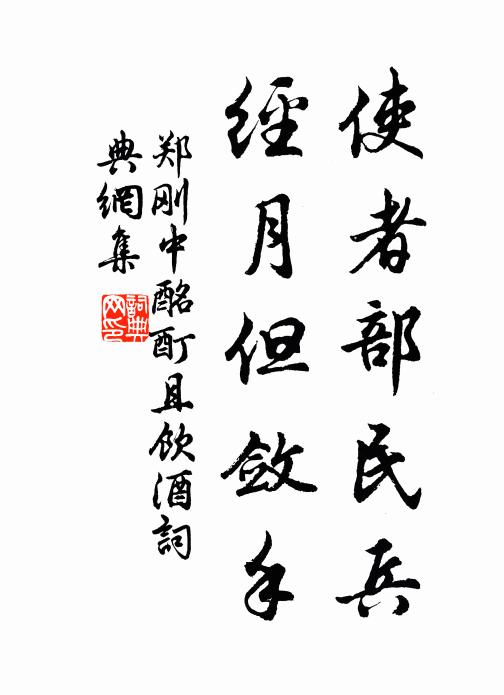 使者部民兵
经月但敛手
郑刚中酩酊且饮酒词
典网集
詞典网印